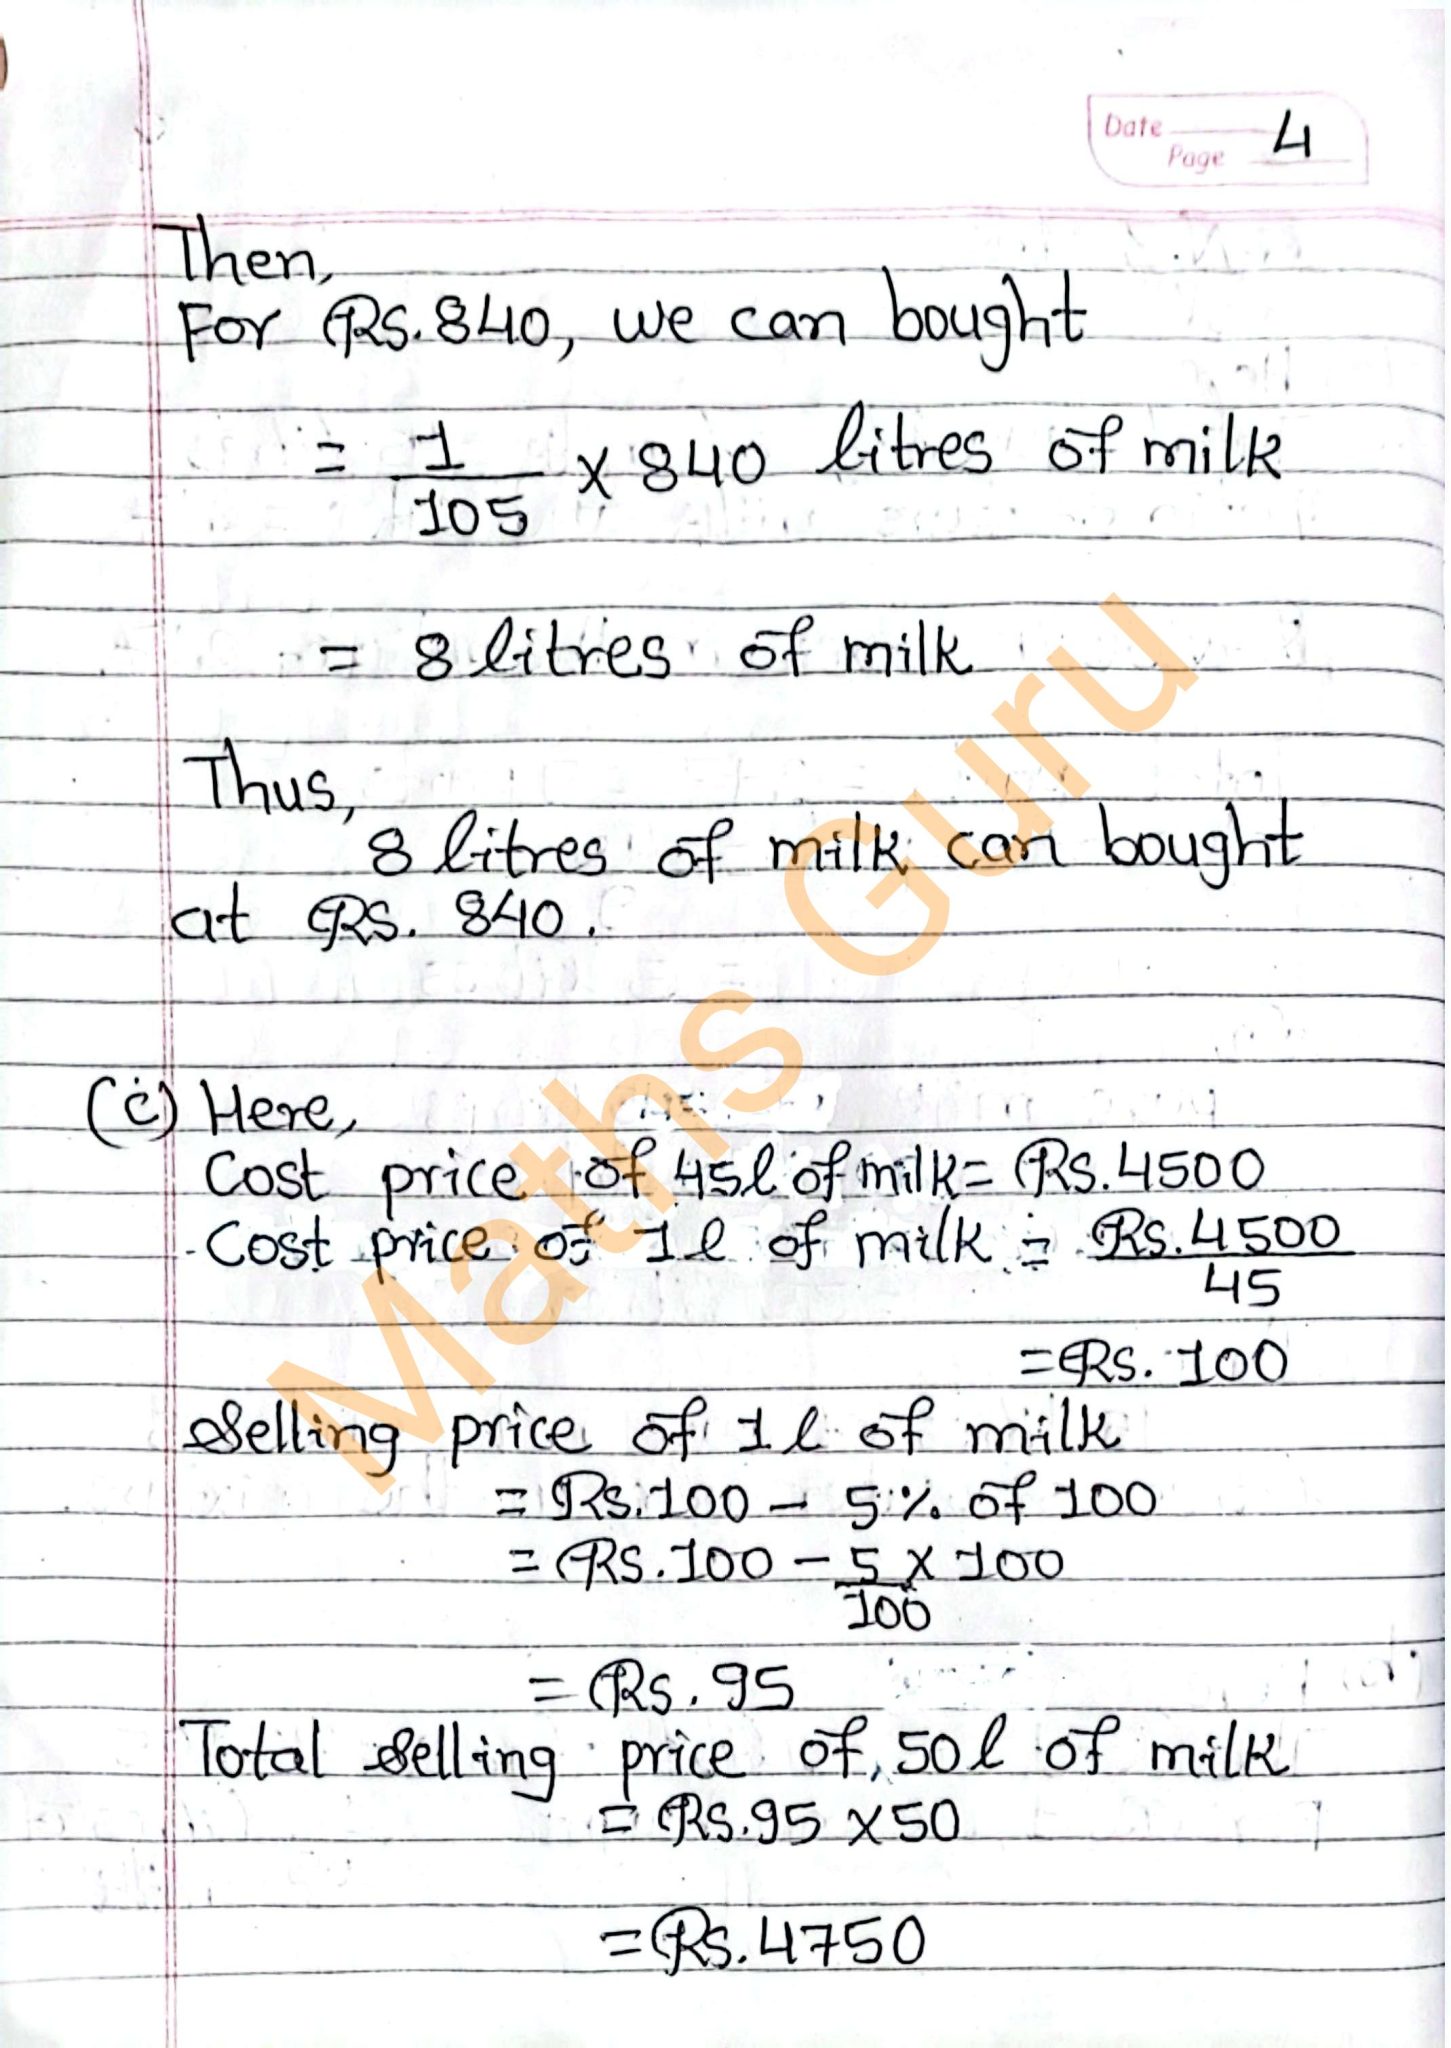 Date
Page 4
Then,
For Rs.840, we can bought
= 1/105 × 840 litres of milk
= 8 litres of milk
Thus,
8 litres of milk can bought
at Rs. 840.
(c) Here,
Cost price of 45l of milk = Rs.4500
Cost price of 1l of milk = Rs.4500/45
= Rs. 100
Selling price of 1l of milk
= Rs.100 - 5% of 100
= Rs.100 - 5/100 × 100
= Rs. 95
Total selling price of 50l of milk
= Rs.95 × 50
= Rs.4750
Maths Guru